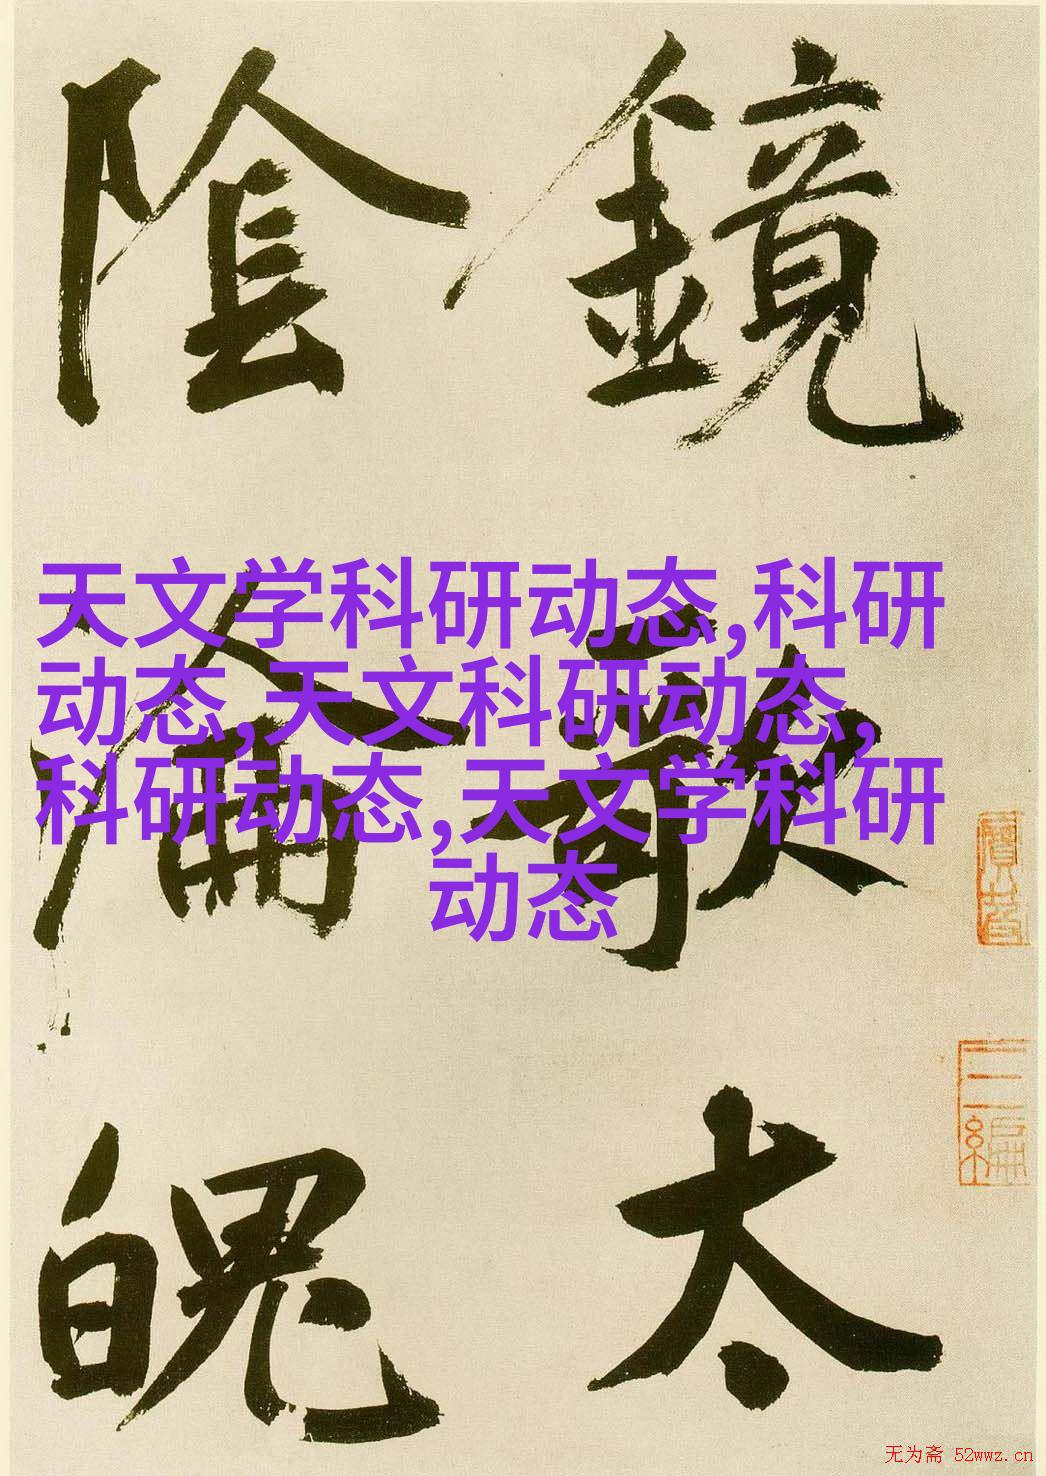 鏡歌太
陰淪魄
天文学科研动态,科研
动态,天文科研动态,
科研动态,天文学科研
动态
无为斋 52wwz.cn